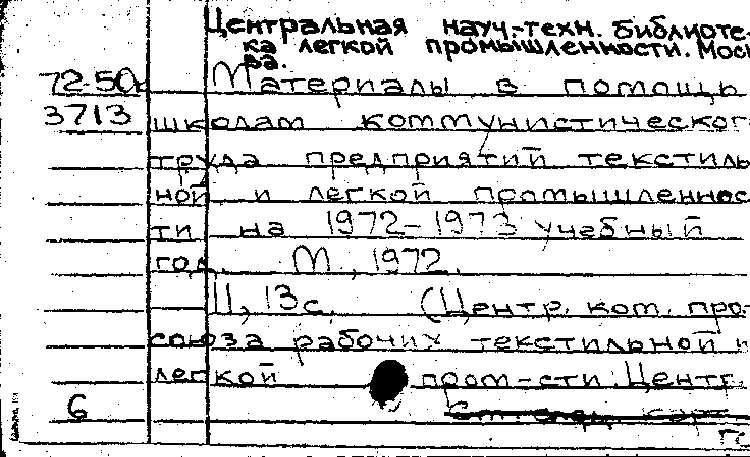 Центральная науч.-техн. библиоте-
ка легкой промышленности. Моск
ва.
72-50к Материалы в помощь
3713 школам коммунистического
труда предприятий текстиль
ной и легкой промышленнос
ти на 1972-1973 учебный
год. М., 1972.
II, 13 с. (Центр. ком. про-
союза рабочих текстильной и
легкой пром-сти. Центр.
6